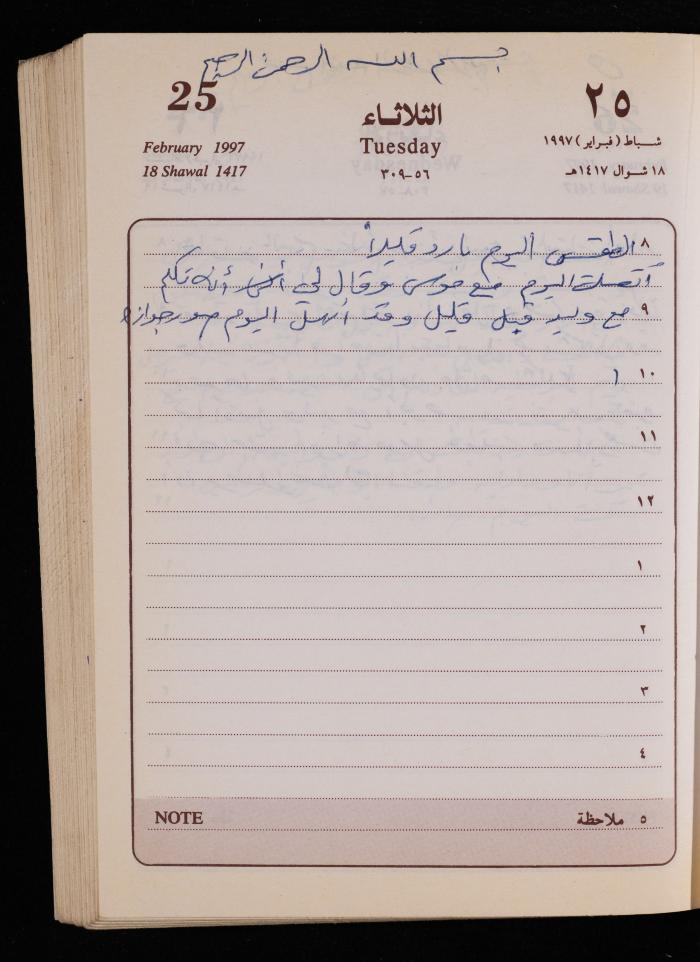 بسم الله الرحمن الرحيم
25
٢٥
الثلاثاء
Tuesday
February 1997
شباط (فبراير) ١٩٩٧
18 Shawal 1417
٥٦-٣٠٩
١٨ شوال ١٤١٧هـ
٨ الطقس اليوم بارد قليلاً
اتصلت اليوم مع موسى وقال لي أنه تكلم
٩ مع وليد قبل قليل وقد أرسل اليوم صور جوازه
١٠
١١
١٢
١
٢
٣
٤
NOTE
٥ ملاحظة